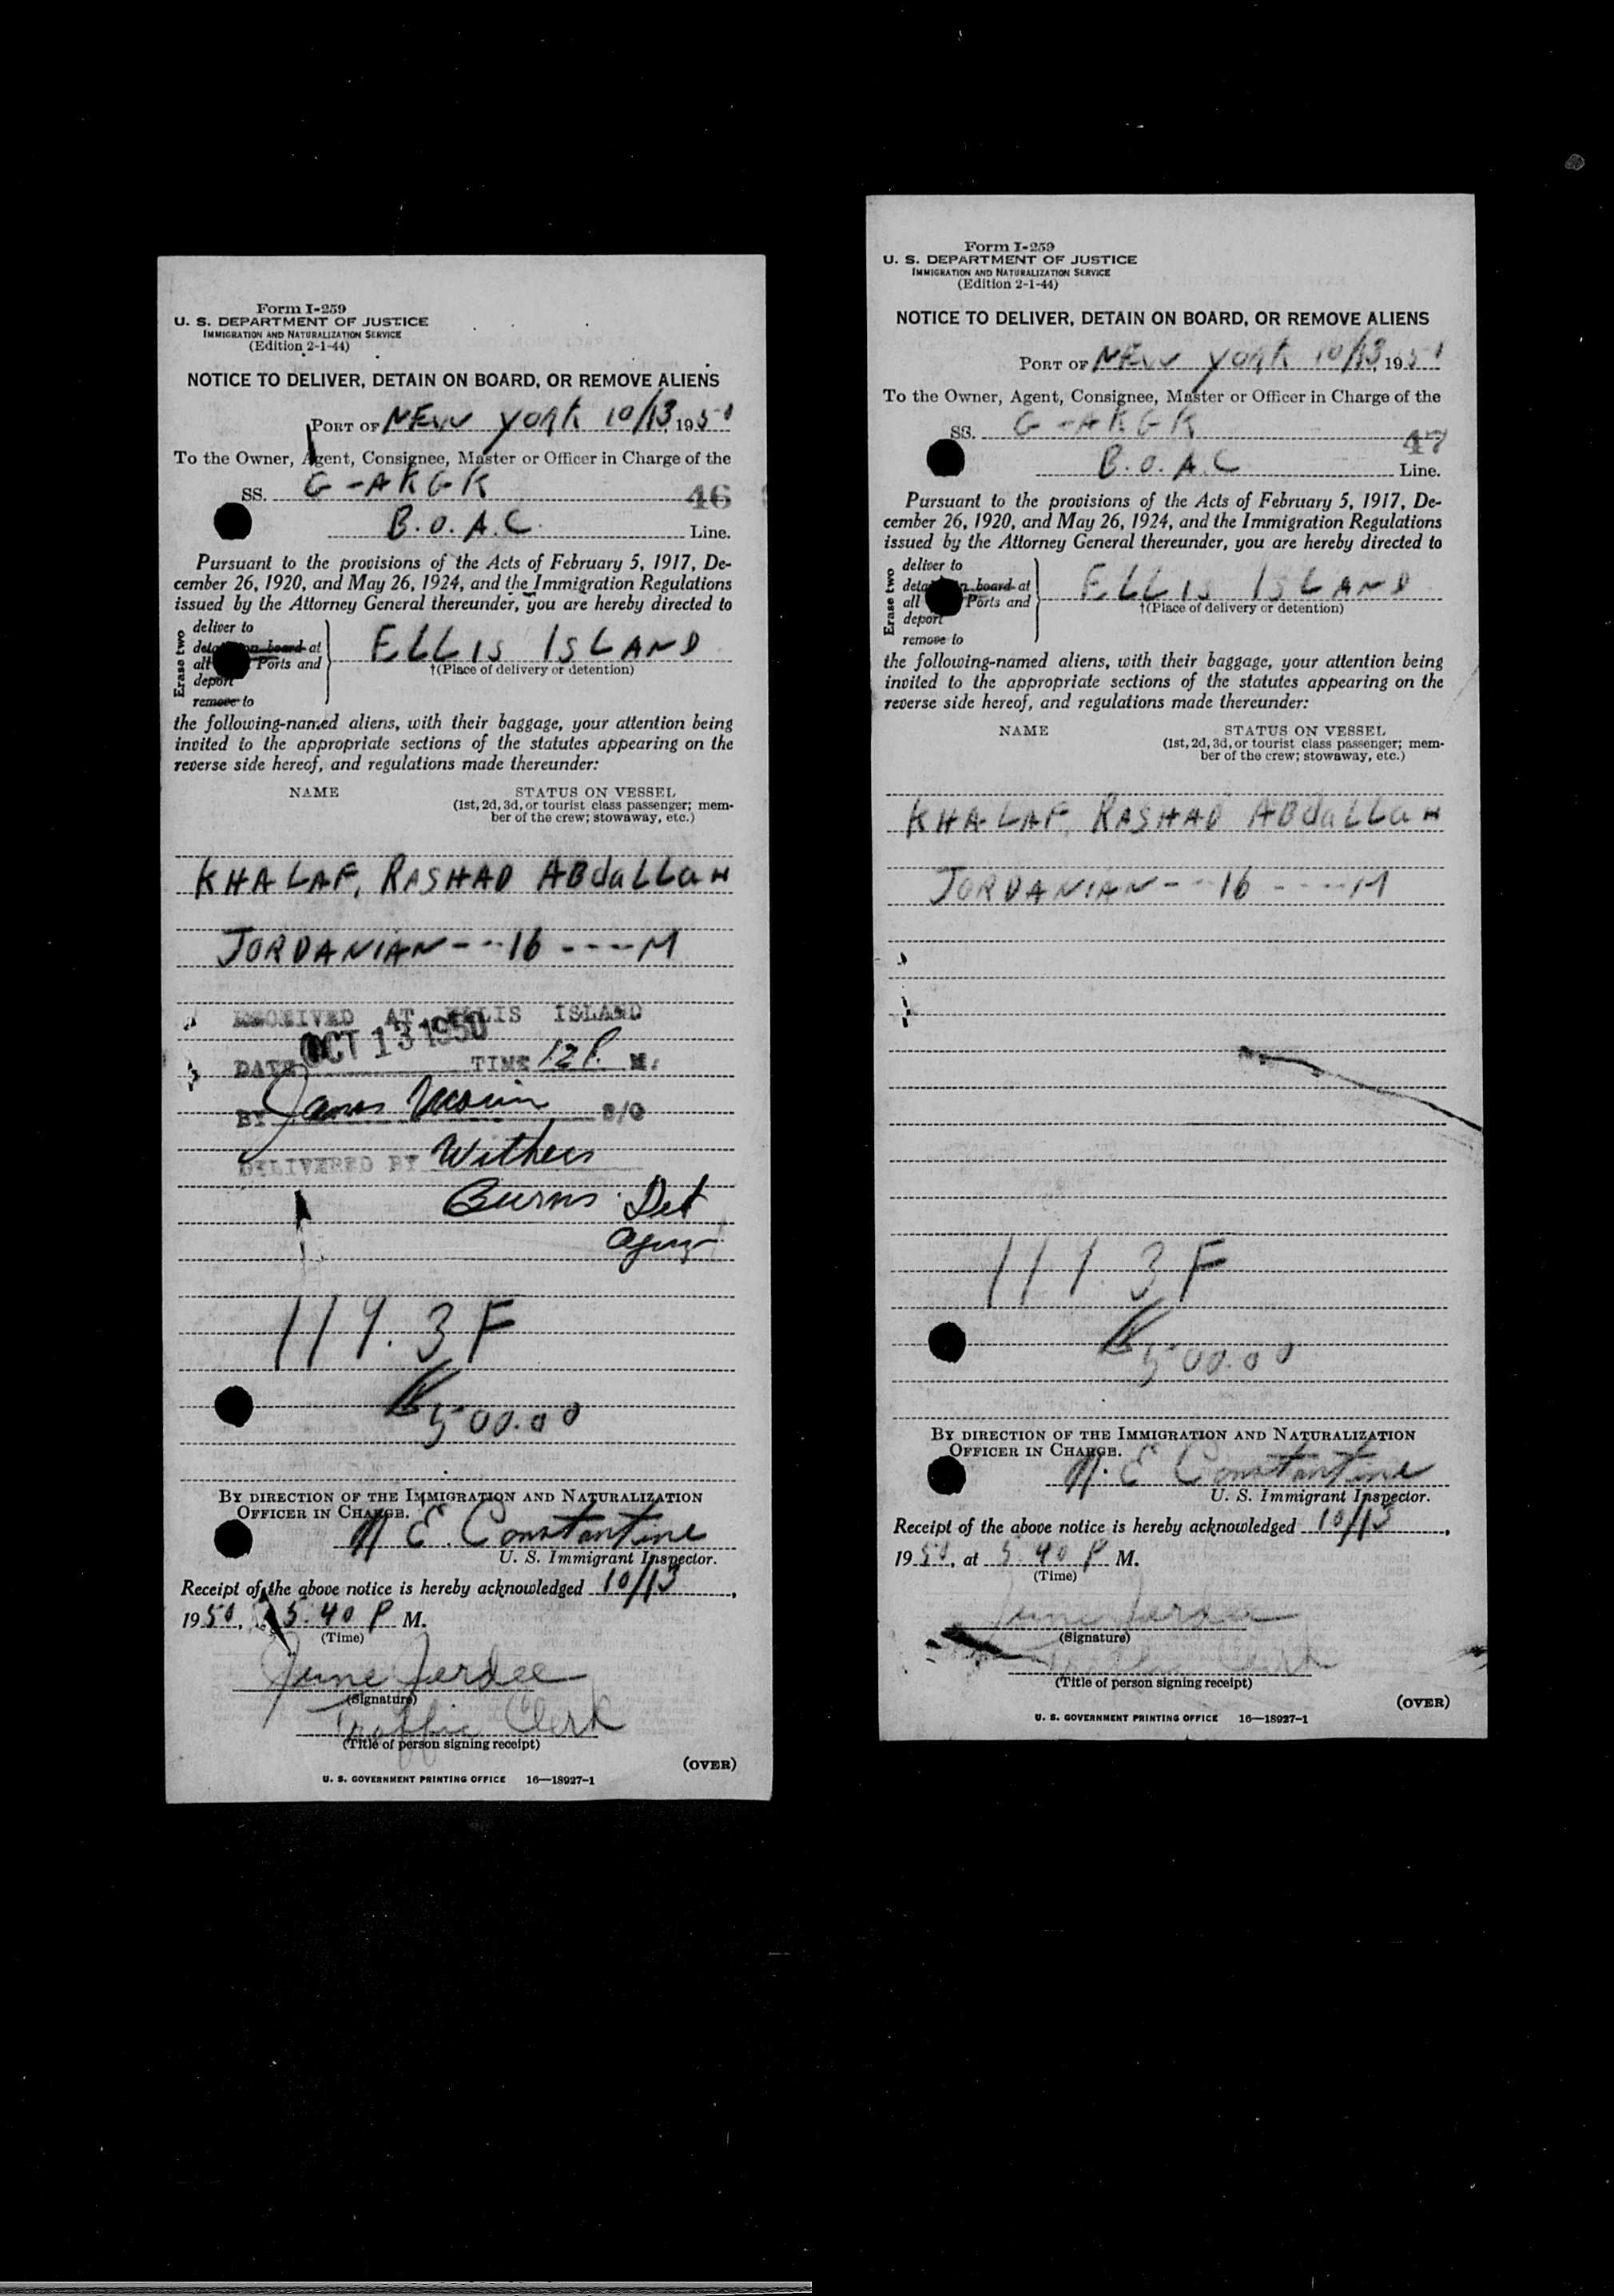 Form I-259
U. S. DEPARTMENT OF JUSTICE
IMMIGRATION AND NATURALIZATION SERVICE
(Edition 2-1-44)
NOTICE TO DELIVER, DETAIN ON BOARD, OR REMOVE ALIENS
PORT OF NEW YORK 10/13, 1950
To the Owner, Agent, Consignee, Master or Officer in Charge of the
SS. G-AKGK 46
B.O.A.C. Line.
Pursuant to the provisions of the Acts of February 5, 1917, De-
cember 26, 1920, and May 26, 1924, and the Immigration Regulations
issued by the Attorney General thereunder, you are hereby directed to
Erase two
deliver to
on board at
all Ports and
deport
remove to
ELLIS ISLAND
†(Place of delivery or detention)
the following-named aliens, with their baggage, your attention being
invited to the appropriate sections of the statutes appearing on the
reverse side hereof, and regulations made thereunder:
NAME STATUS ON VESSEL
(1st, 2d, 3d, or tourist class passenger; mem-
ber of the crew; stowaway, etc.)
KHALAF, RASHAD ABdaLLaH
JORDANIAN---16----M
RECEIVED AT ELLIS ISLAND
DATE OCT 13 1950 TIME 12 P. M.
BY James S/O
DELIVERED BY Withers
Burns Det
Agency
119.3F
500.00
BY DIRECTION OF THE IMMIGRATION AND NATURALIZATION
OFFICER IN CHARGE.
N. E. Constantine
U. S. Immigrant Inspector.
Receipt of the above notice is hereby acknowledged 10/13,
1950, 5:40 P M.
(Time)
June Jerdee
(Signature)
Traffic Clerk
(Title of person signing receipt)
(OVER)
U. S. GOVERNMENT PRINTING OFFICE 16—18927-1
Form I-259
U. S. DEPARTMENT OF JUSTICE
IMMIGRATION AND NATURALIZATION SERVICE
(Edition 2-1-44)
NOTICE TO DELIVER, DETAIN ON BOARD, OR REMOVE ALIENS
PORT OF NEW YORK 10/13, 1950
To the Owner, Agent, Consignee, Master or Officer in Charge of the
SS. G-AKGK 47
B.O.A.C Line.
Pursuant to the provisions of the Acts of February 5, 1917, De-
cember 26, 1920, and May 26, 1924, and the Immigration Regulations
issued by the Attorney General thereunder, you are hereby directed to
Erase two
deliver to
on board at
all Ports and
deport
remove to
ELLIS ISLAND
†(Place of delivery or detention)
the following-named aliens, with their baggage, your attention being
invited to the appropriate sections of the statutes appearing on the
reverse side hereof, and regulations made thereunder:
NAME STATUS ON VESSEL
(1st, 2d, 3d, or tourist class passenger; mem-
ber of the crew; stowaway, etc.)
KHALAF, RASHAD ABdaLLaH
JORDANIAN---16----M
119.3F
500.00
BY DIRECTION OF THE IMMIGRATION AND NATURALIZATION
OFFICER IN CHARGE.
N. E Constantine
U. S. Immigrant Inspector.
Receipt of the above notice is hereby acknowledged 10/13,
1950, at 5:40 P M.
(Time)
June Jerdee
(Signature)
Traffic Clerk
(Title of person signing receipt)
(OVER)
U. S. GOVERNMENT PRINTING OFFICE 16—18927-1